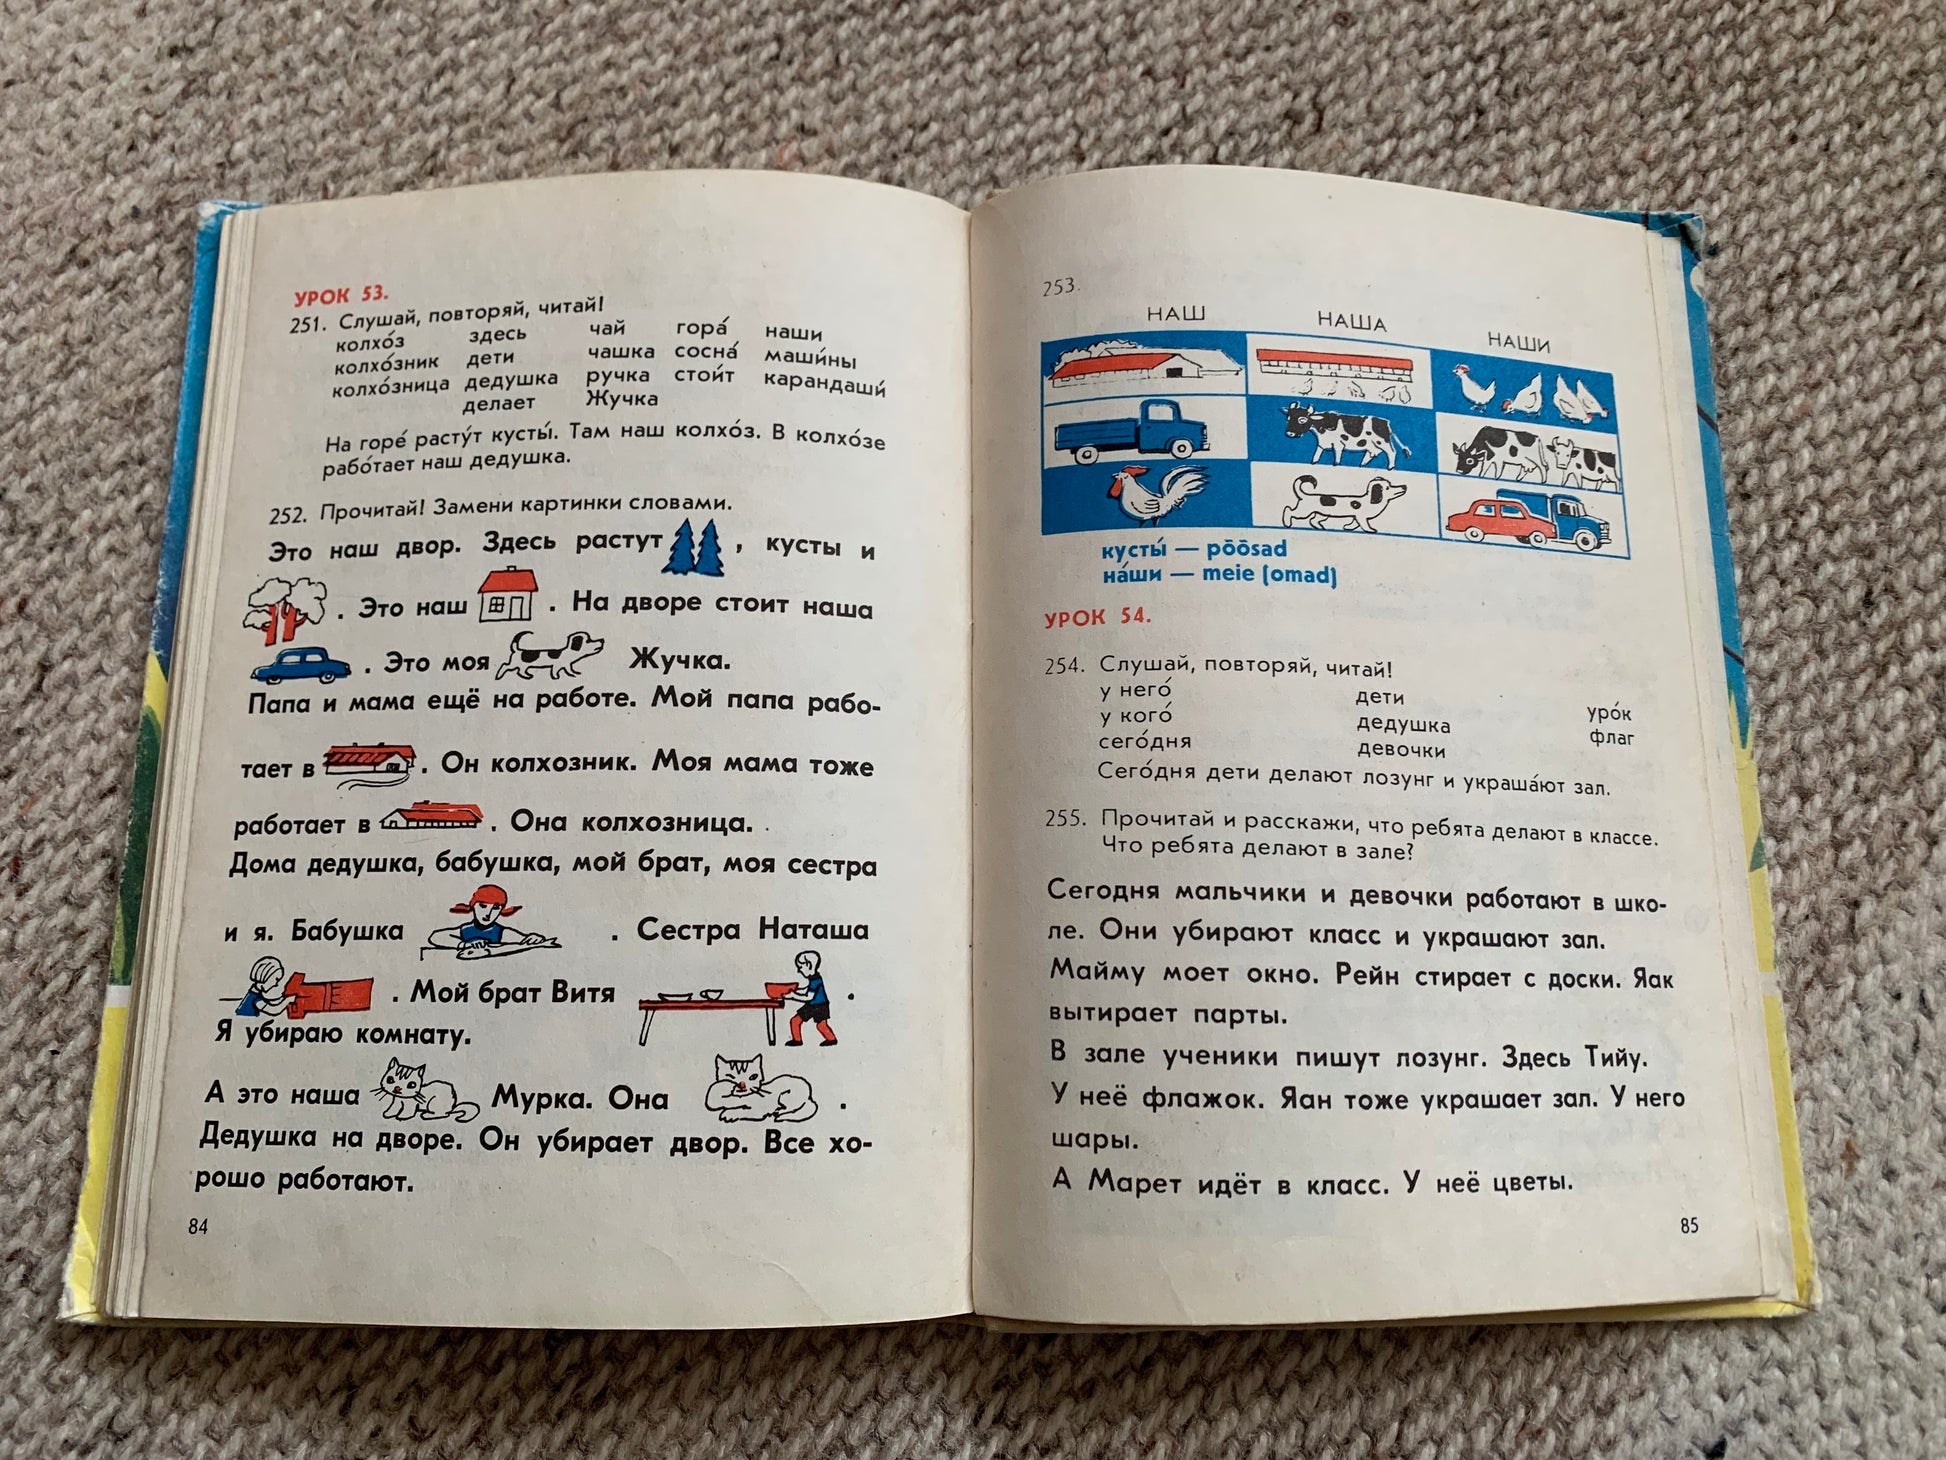 УРОК 53.
251. Слушай, повторяй, читай!
колхо́з здесь чай гора́ наши
колхо́зник дети чашка сосна́ маши́ны
колхо́зница дедушка ручка стои́т карандаши́
делает Жучка
На горе́ расту́т кусты́. Там наш колхо́з. В колхо́зе
рабо́тает наш дедушка.
252. Прочитай! Замени картинки словами.
Это наш двор. Здесь растут , кусты и
. Это наш . На дворе стоит наша
. Это моя Жучка.
Папа и мама ещё на работе. Мой папа рабо-
тает в . Он колхозник. Моя мама тоже
работает в . Она колхозница.
Дома дедушка, бабушка, мой брат, моя сестра
и я. Бабушка . Сестра Наташа
. Мой брат Витя .
Я убираю комнату.
А это наша Мурка. Она .
Дедушка на дворе. Он убирает двор. Все хо-
рошо работают.
84
253.
НАШ НАША НАШИ
кусты́ — põõsad
на́ши — meie (omad)
УРОК 54.
254. Слушай, повторяй, читай!
у него́ дети уро́к
у кого́ дедушка флаг
сего́дня девочки
Сего́дня дети делают лозунг и украша́ют зал.
255. Прочитай и расскажи, что ребята делают в классе.
Что ребята делают в зале?
Сегодня мальчики и девочки работают в шко-
ле. Они убирают класс и украшают зал.
Майму моет окно. Рейн стирает с доски. Яак
вытирает парты.
В зале ученики пишут лозунг. Здесь Тийу.
У неё флажок. Яан тоже украшает зал. У него
шары.
А Марет идёт в класс. У неё цветы.
85